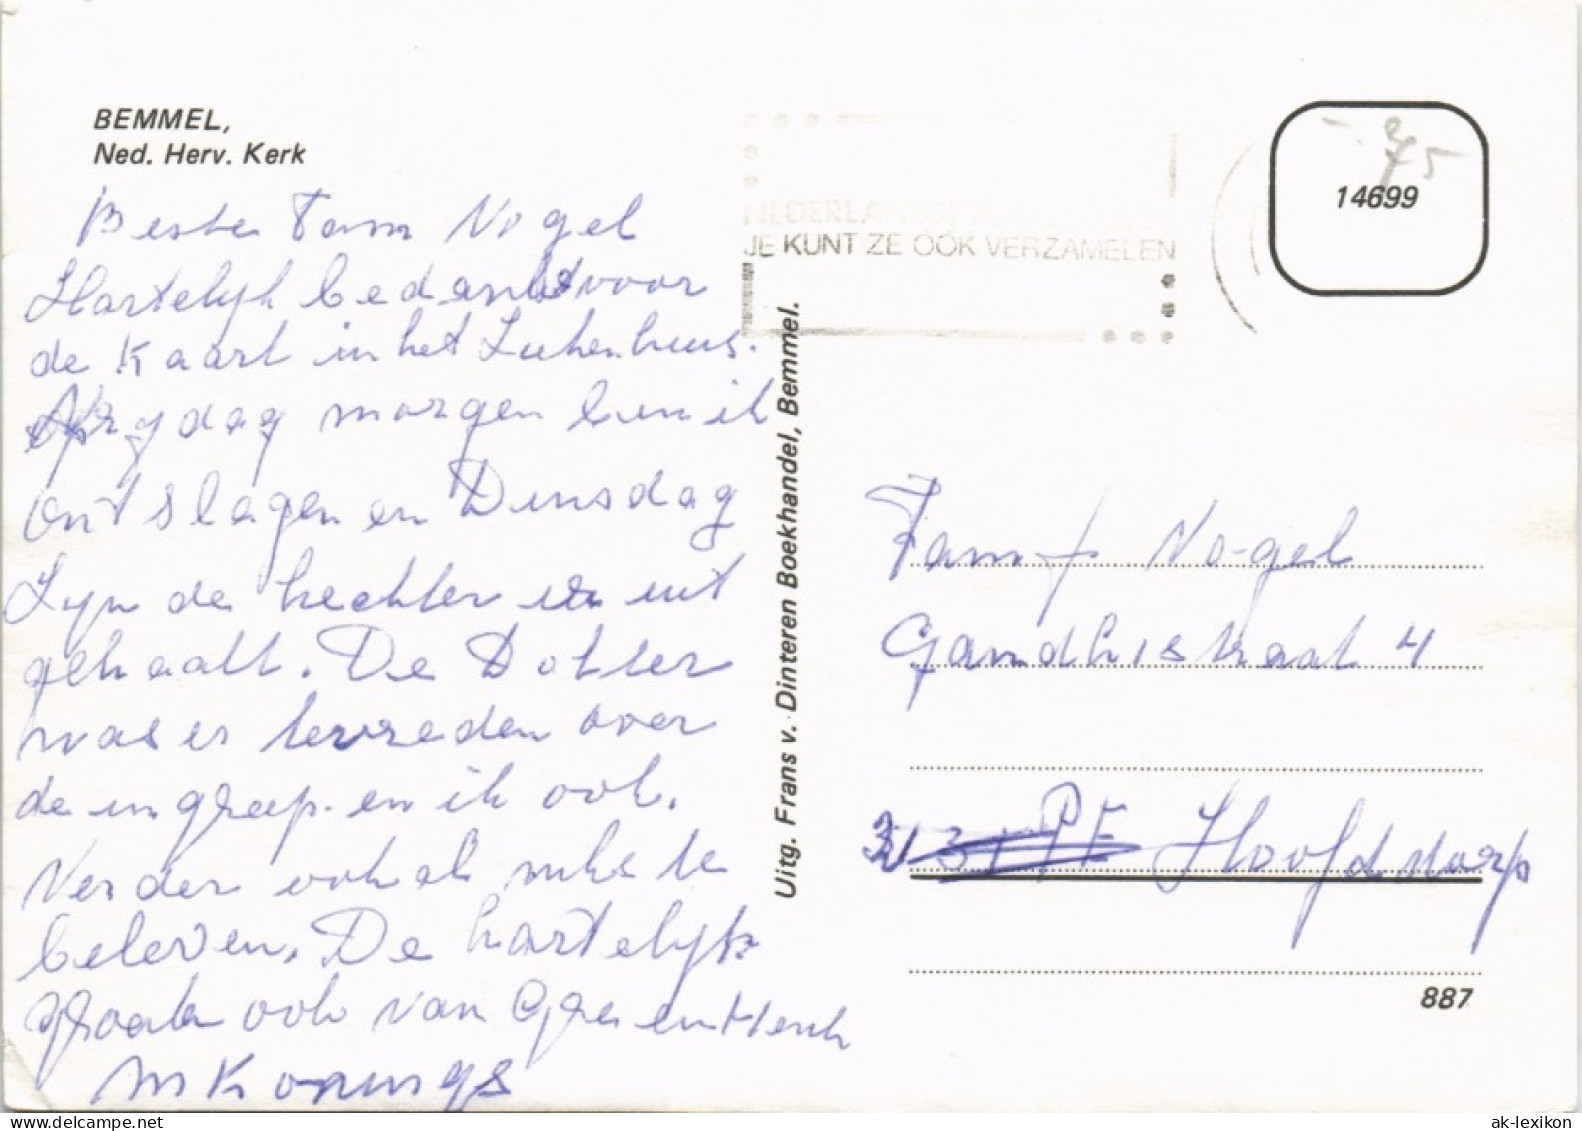 BEMMEL,
Ned. Herv. Kerk
Beste Fam Nogel
Hartelyk bedankt voor
de Kaart in het Ziekenhuus.
Vrydag morgen ben ik
ontslagen en Dinsdag
Zyn de hechten er uit
gehaalt. De Dokter
was er tevreden over
de ingreep. en ik ook.
Verder ook niks te
beleven. De hartelyk
groeten ook van Gre en Henk
M Konings
Uitg. Frans v. Dinteren Boekhandel, Bemmel.
NEDERLANDSE
JE KUNT ZE OOK VERZAMELEN
14699
Fam Nogel
Gandhistraat 4
PE Hoofddorp
887
ak-lexikon